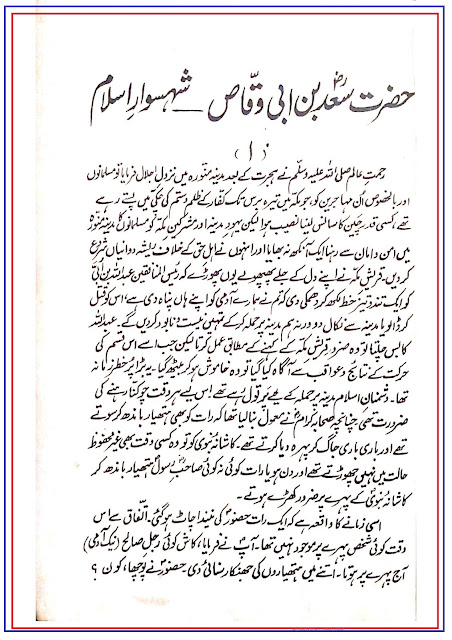 حضرت سعدؓ بن ابی وقّاص ــ شہسوارِ اسلام
(۱)
رحمتِ عالم صلی اللہ علیہ وسلم نے ہجرت کے بعد مدینہ منورہ میں نزولِ اجلال فرمایا تو مسلمانوں
اور بالخصوص اُن مہاجرین کو جو مکہ میں تیرہ برس تک کفار کے ظلم و ستم کی چکی میں پستے رہے
تھے، کسی قدر چین کا سانس لینا نصیب ہوا لیکن یہودِ مدینہ اور مشرکینِ مکہ کو مسلمانوں کا مدینہ منورہ
میں امن و امان سے رہنا ایک آنکھ نہ بھایا اور انہوں نے اہلِ حق کے خلاف ریشہ دوانیاں شروع
کر دیں۔ قریشِ مکہ نے اپنے دل کے جلے پھپھولے یوں پھوڑے کہ رئیس المنافقین عبداللہ بن اُبَی
کو ایک تند و تیز خط لکھ کر دھمکی دی کہ تم نے ہمارے آدمی کو اپنے ہاں پناہ دی ہے اس کو قتل
کر ڈالو یا مدینہ سے نکال دو ورنہ ہم مدینہ پر حملہ کر کے تمہیں نیست و نابود کر دیں گے۔ عبداللہ
کا بس چلتا تو وہ ضرور قریشِ مکہ کے کہنے کے مطابق عمل کرتا لیکن جب اسے اس قسم کی
حرکت کے نتائج و عواقب سے آگاہ کیا گیا تو وہ خاموش ہو کر بیٹھ گیا۔ یہ بڑا پُر خطر زمانہ
تھا۔ دشمنانِ اسلام مدینہ پر حملہ کے لیے پر تول رہے تھے اس لیے ہر وقت چوکنا رہنے کی
ضرورت تھی چنانچہ صحابہ کرامؓ نے معمول بنا لیا تھا کہ رات کو بھی ہتھیار باندھ کر سوتے
تھے اور باری باری جاگ کر پہرہ دیا کرتے تھے۔ کاشانۂ نبوی کو تو وہ کسی وقت بھی غیر محفوظ
حالت میں نہیں چھوڑتے تھے اور دن ہو یا رات کوئی نہ کوئی صاحبِ رسولؐ ہتھیار باندھ کر
کاشانۂ نبویؐ کے پہرے پر ضرور کھڑے ہوتے۔
اسی زمانے کا واقعہ ہے کہ ایک رات حضورؐ کی نیند اچاٹ ہو گئی۔ اتفاق سے اس
وقت کوئی شخص پہرے پر موجود نہیں تھا۔ آپؐ نے فرمایا، کاش کوئی رجلِ صالح (نیک آدمی)
آج پہرے پر ہوتا۔ اتنے میں ہتھیاروں کی جھنکار سنائی دی۔ حضورؐ نے پوچھا، کون ؟